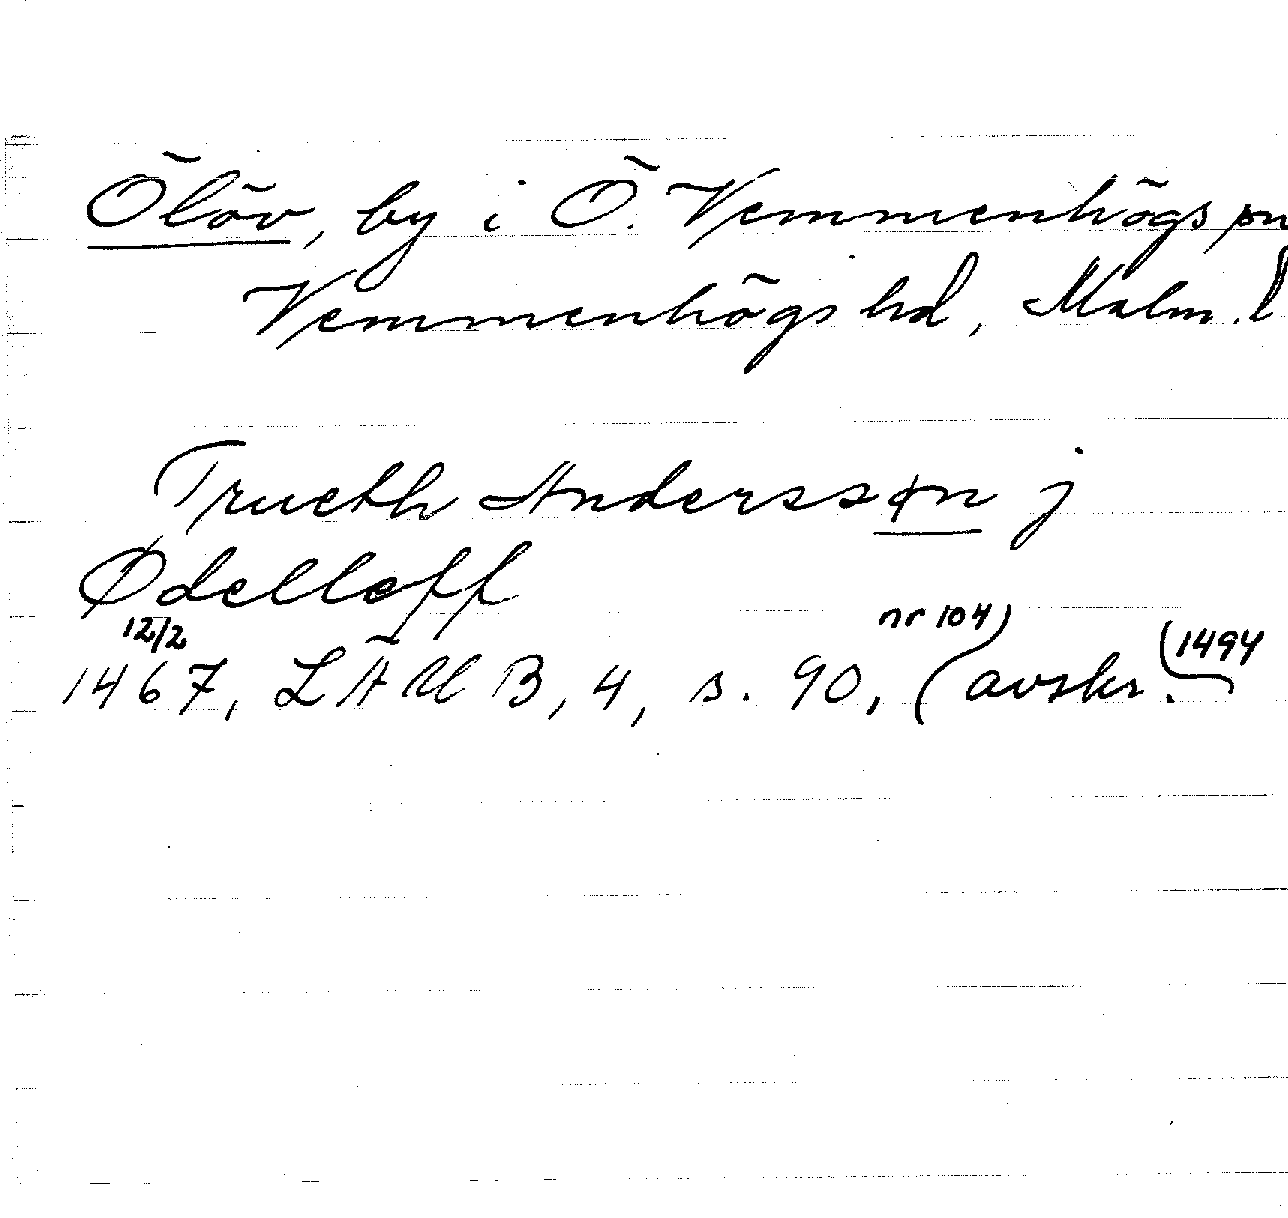 Ölöv, by i Ö. Vemmenhögs sn
Vemmenhögs hd, Malm. l
Trueth Anderssøn j
Ødelleff
12/2 nr 104) (1494
1467, LÄUB, 4, s. 90, (avskr.